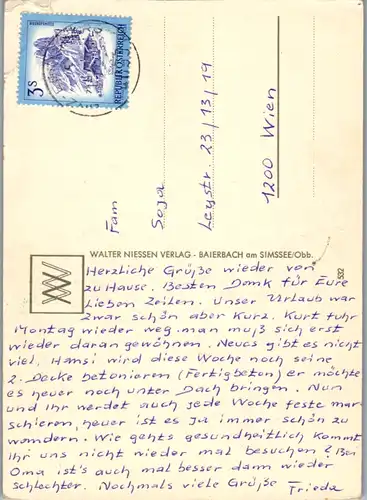 3S
REPUBLIK ÖSTERREICH
Fam
Soja
Leystr. 23/13/19
1200 Wien
WALTER NIESSEN VERLAG - BAIERBACH am SIMSSEE/Obb.
532
Herzliche Grüße wieder von
zu Hause. Besten Dank für Eure
Lieben Zeilen. Unser Urlaub war
zwar schön aber kurz. Kurt fuhr
Montag wieder weg. man muß sich erst
wieder daran gewöhnen. Neues gibt es nicht
viel, Hansi wird diese Woche noch seine
2. Decke betonieren (Fertigbeton) er möchte
es heuer noch unter Dach bringen. Nun
und Ihr werdet auch jede Woche feste mar-
schieren, heuer ist es ja immer schön zu
wandern. Wie gehts gesundheitlich kommt
Ihr uns nicht wieder mal besuchen? Bei
Oma ist's auch mal besser dann wieder
schlechter. Nochmals viele Grüße Frieda